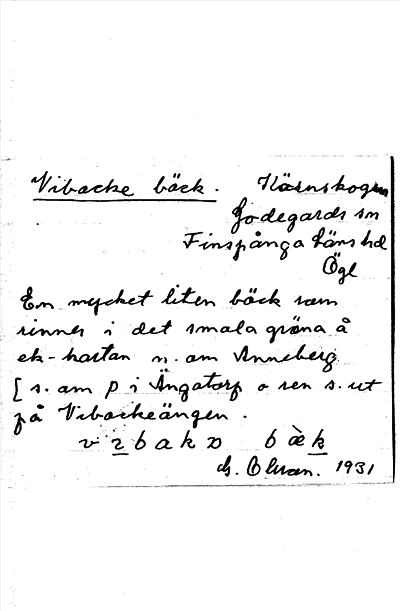 Vibacke bäck. Kärnskogen
Godegards sn
Finspånga läns hd
Ögl
En mycket liten bäck som
rinner i det smala gröna å
ek-kartan n. om Anneberg
[s. om p i Ängatorp o sen s. ut
på Vibackeängen.
bæ̀k
G. 1931